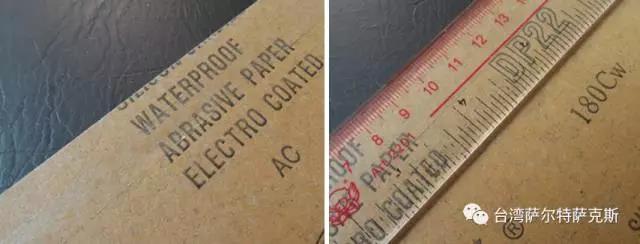 WATERPROOF
ABRASIVE PAPER
ELECTRO COATED
AC
7 8 9 10 11 12 13
DP22
180Cw
PAPER
COATED
®
台湾萨尔特萨克斯